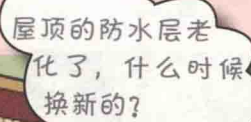 屋顶的防水层老
化了，什么时候
换新的？